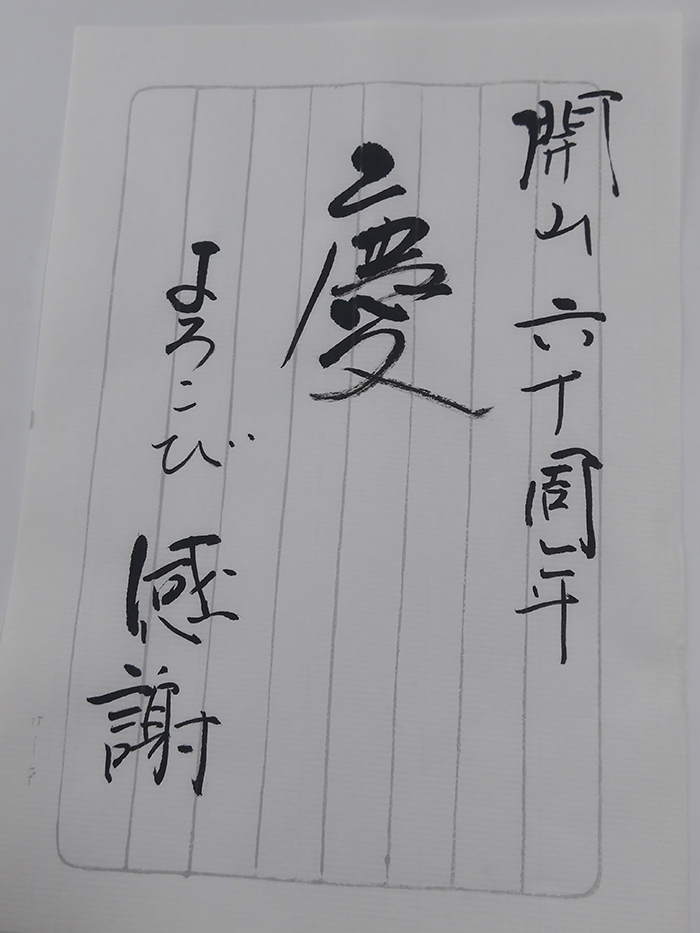 開山六十周年
慶
よろこび感謝